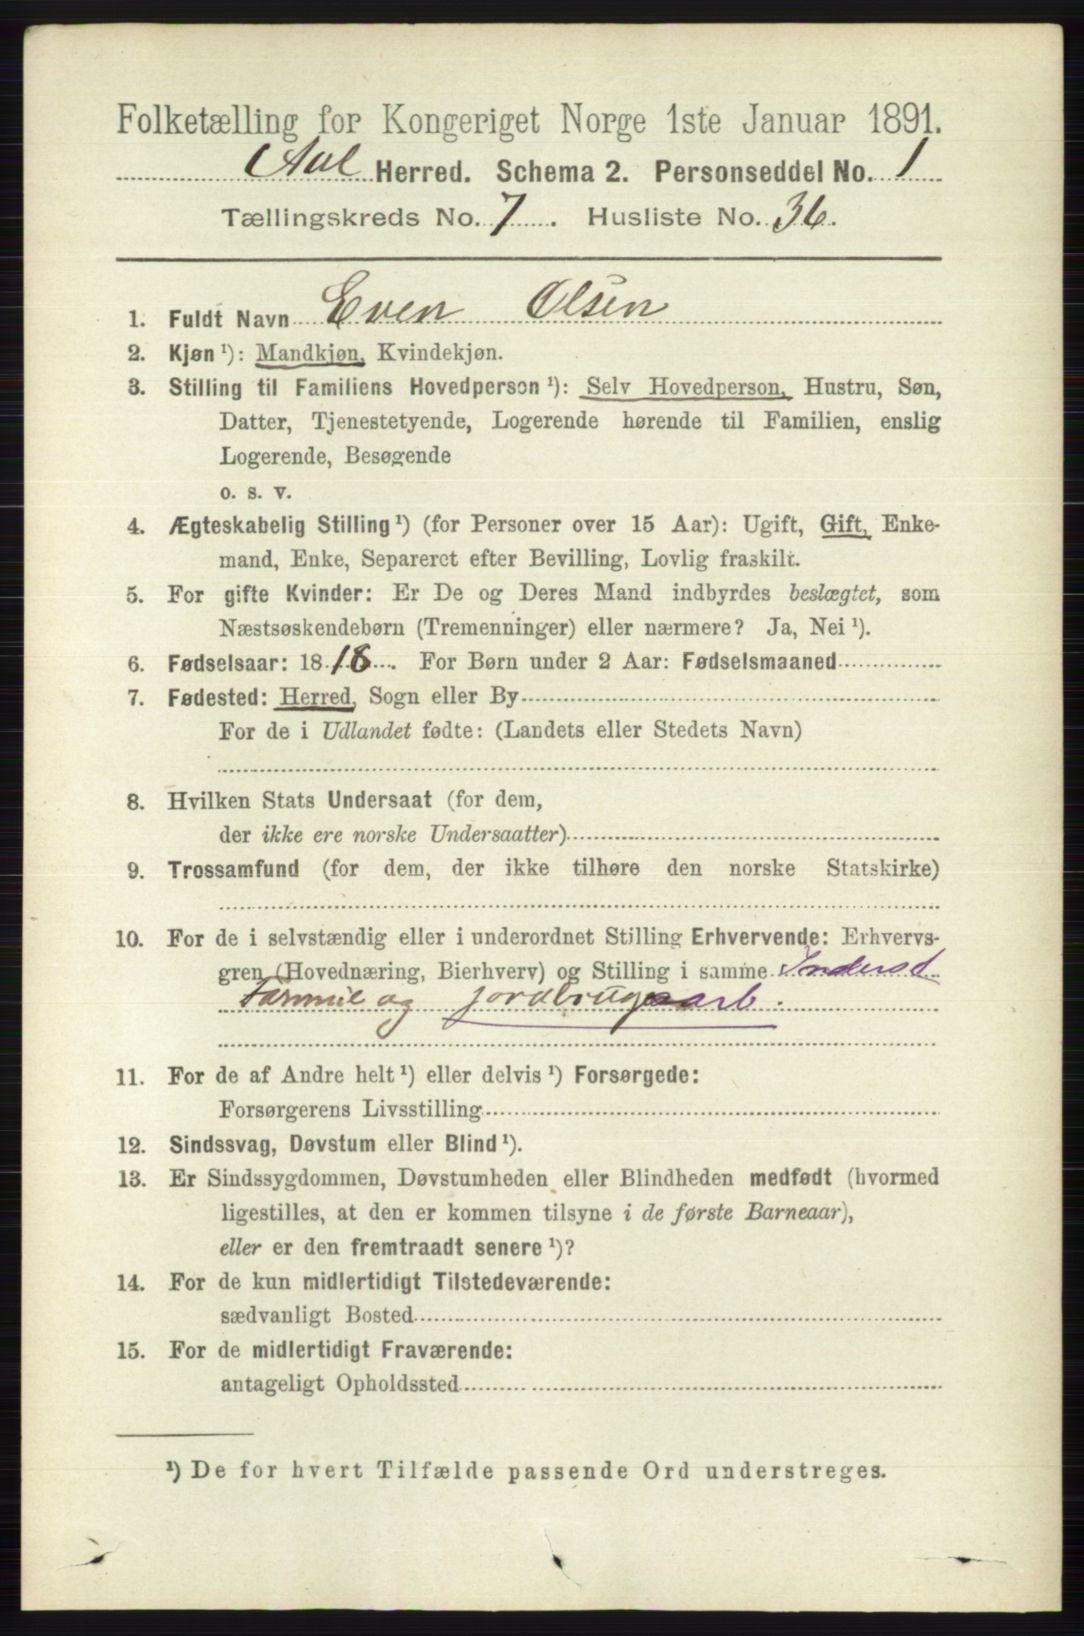 Folketælling for Kongeriget Norge 1ste Januar 1891.
Aal Herred. Schema 2. Personseddel No. 1
Tællingskreds No. 7. Husliste No. 36.
1. Fuldt Navn Even Olsen
2. Kjøn ¹): Mandkjøn, Kvindekjøn.
3. Stilling til Familiens Hovedperson ¹): Selv Hovedperson, Hustru, Søn,
Datter, Tjenestetyende, Logerende hørende til Familien, enslig
Logerende, Besøgende
o. s. v.
4. Ægteskabelig Stilling ¹) (for Personer over 15 Aar): Ugift, Gift, Enke-
mand, Enke, Separeret efter Bevilling, Lovlig fraskilt.
5. For gifte Kvinder: Er De og Deres Mand indbyrdes beslægtet, som
Næstsøskendebørn (Tremenninger) eller nærmere? Ja, Nei ¹).
6. Fødselsaar: 1818. For Børn under 2 Aar: Fødselsmaaned
7. Fødested: Herred, Sogn eller By
For de i Udlandet fødte: (Landets eller Stedets Navn)
8. Hvilken Stats Undersaat (for dem,
der ikke ere norske Undersaatter)
9. Trossamfund (for dem, der ikke tilhøre den norske Statskirke)
10. For de i selvstændig eller i underordnet Stilling Erhvervende: Erhvervs-
gren (Hovednæring, Bierhverv) og Stilling i samme
og jordbrugsarb.
11. For de af Andre helt ¹) eller delvis ¹) Forsørgede:
Forsørgerens Livsstilling
12. Sindssvag, Døvstum eller Blind ¹).
13. Er Sindssygdommen, Døvstumheden eller Blindheden medfødt (hvormed
ligestilles, at den er kommen tilsyne i de første Barneaar),
eller er den fremtraadt senere ¹)?
14. For de kun midlertidigt Tilstedeværende:
sædvanligt Bosted
15. For de midlertidigt Fraværende:
antageligt Opholdssted
¹) De for hvert Tilfælde passende Ord understreges.